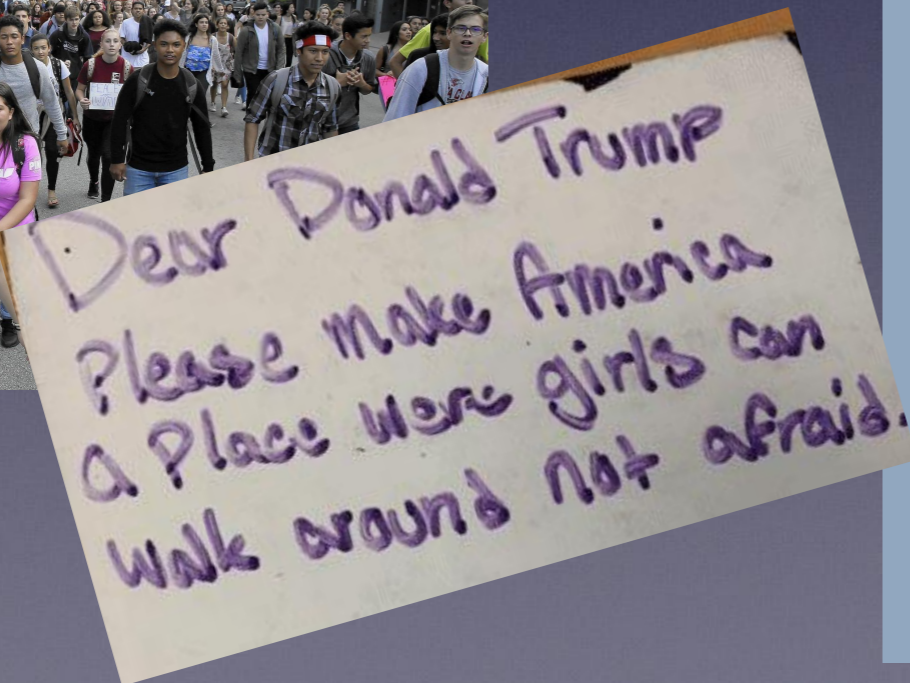 Dear Donald Trump
Please make America
a Place were girls can
walk around not afraid.